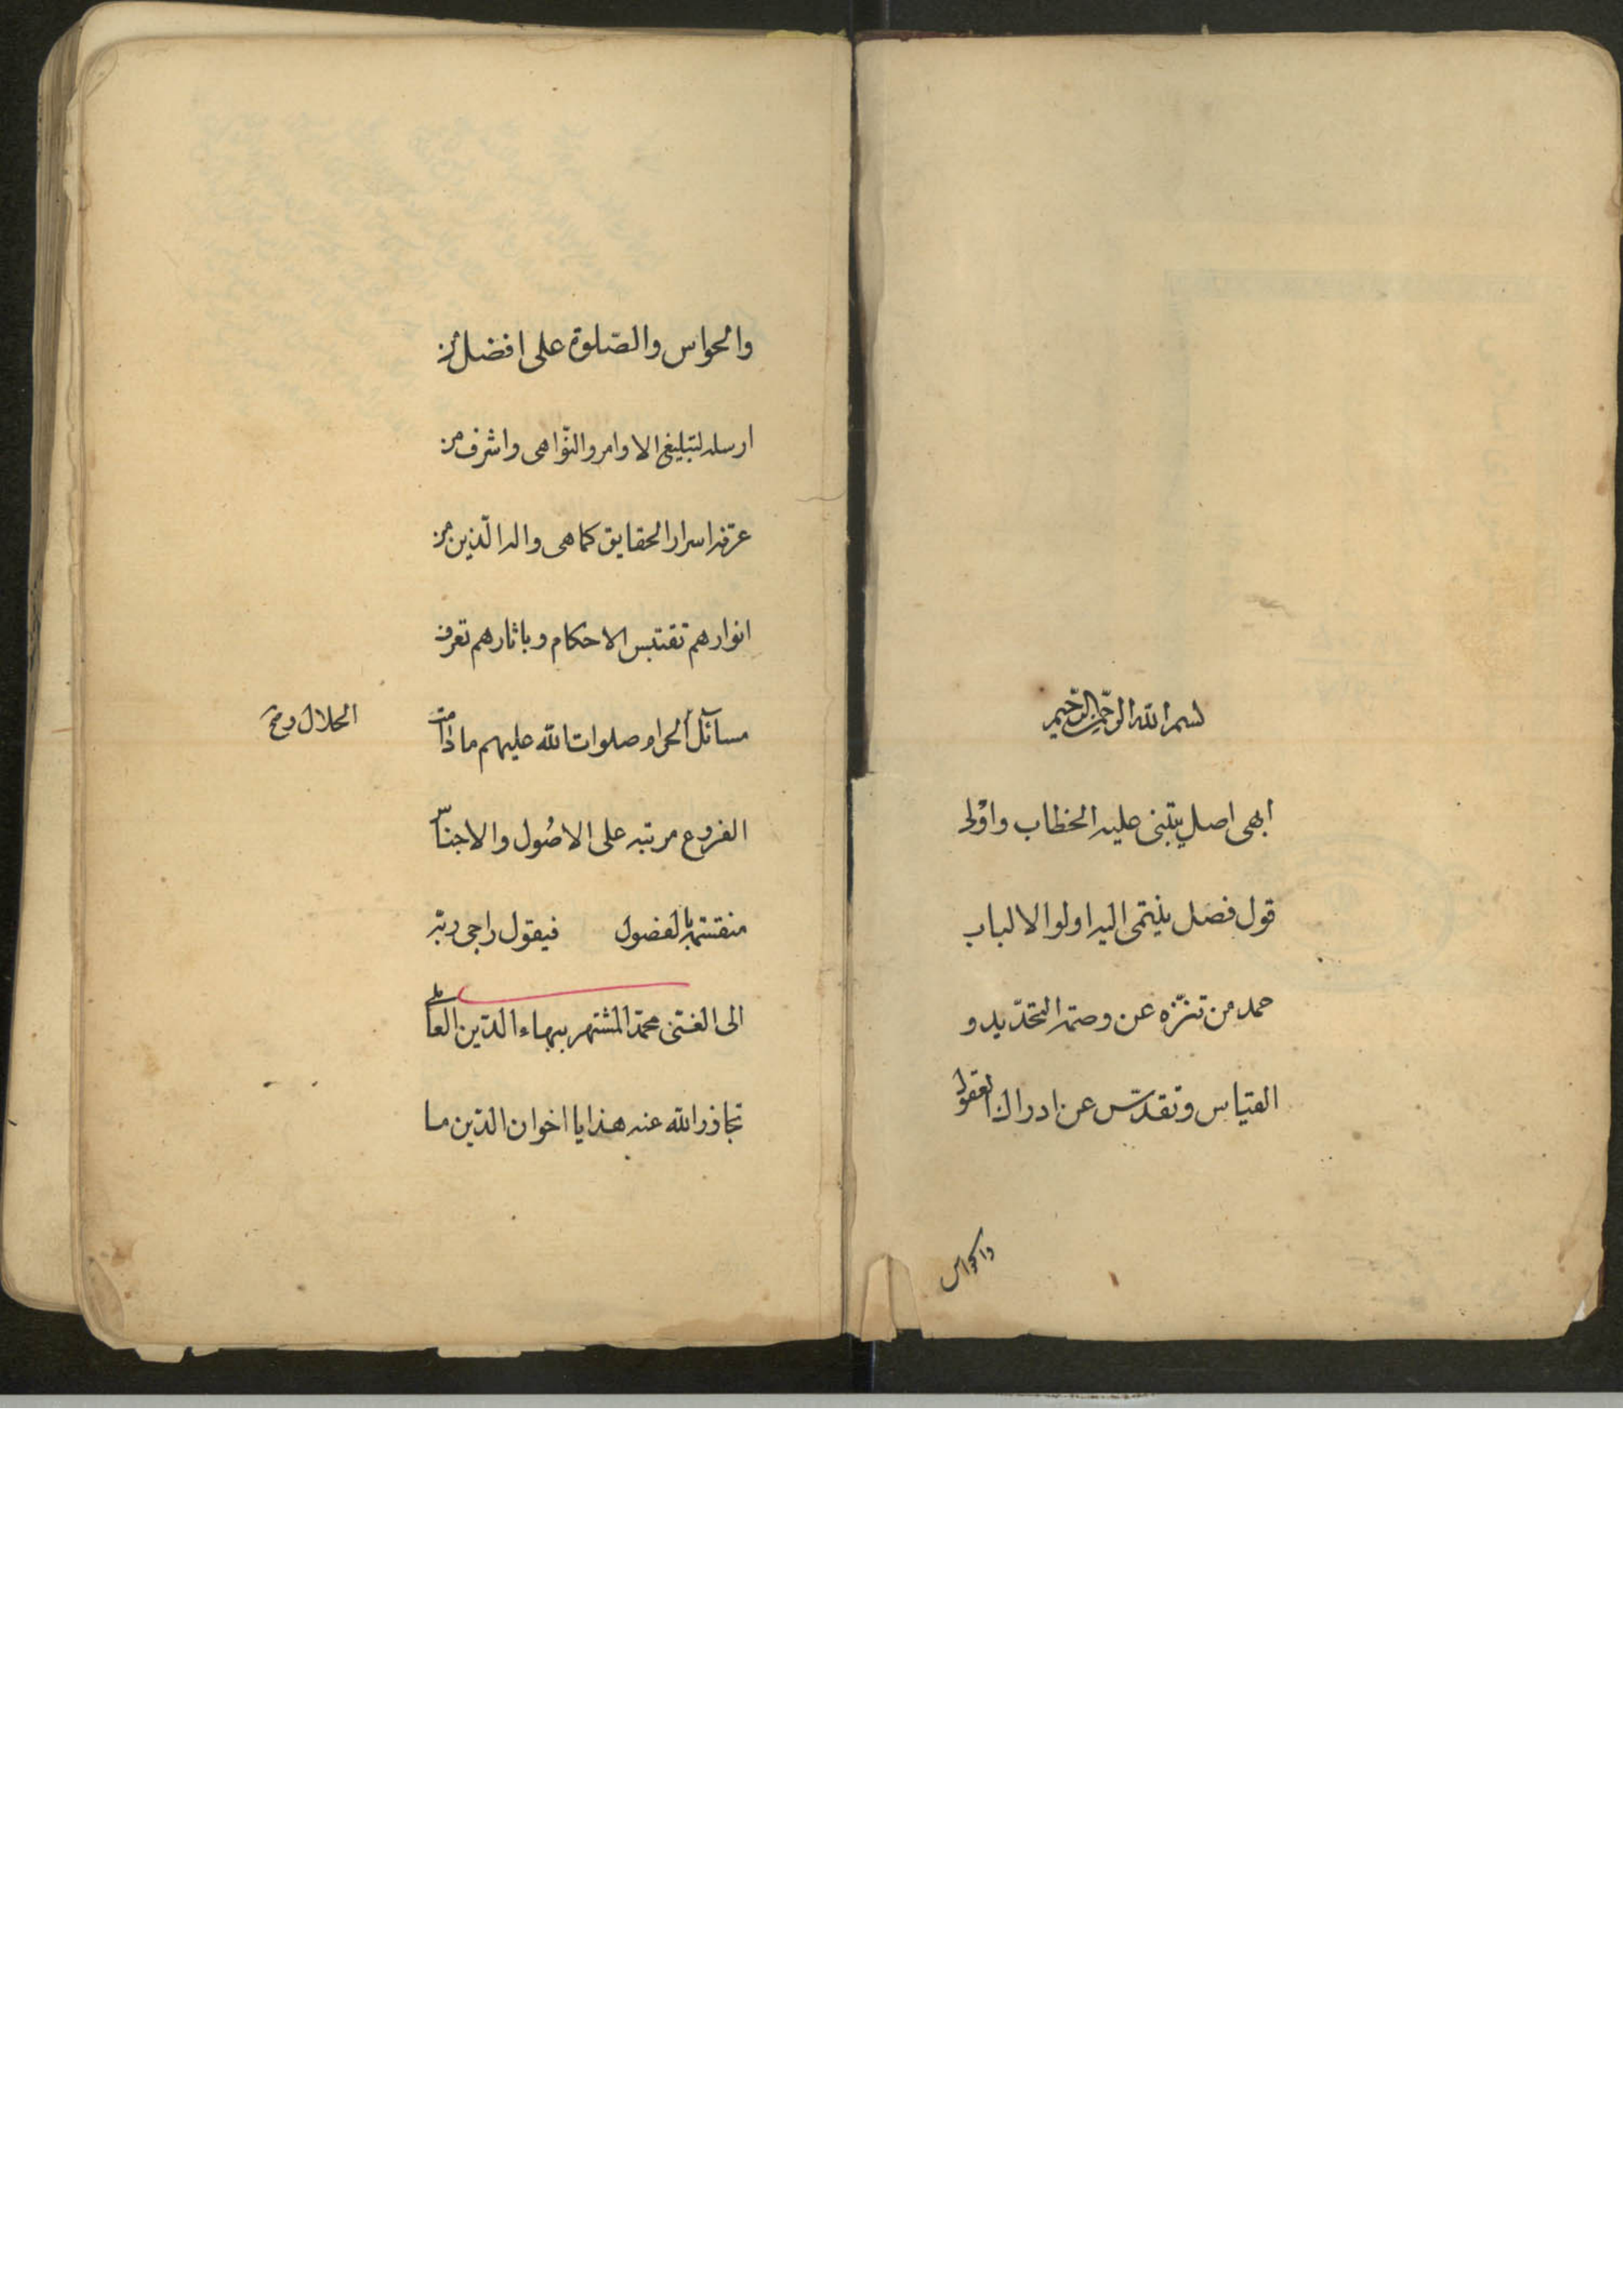 بسم الله الرحمن الرحيم
ابهى اصل يبتنى عليه الخطاب واولى
قول فصل ينتمى اليه اولوا الالباب
حمد من تنزّه عن وصمة التحديد و
القياس وتقدّس عن ادراك العقول
والحواس
والحواس والصّلوة على افضل من
ارسله لتبليغ الاوامر والنّواهى واشرف من
عرّفه اسرار الحقايق كماهى واله الّذين من
انوارهم تقتبس الاحكام وباثارهم تعرف
مسآئل الحرام صلوات الله عليهم مادامت
الحلال و
الفروع مرتبه على الاصُول والاجناس
منقسمة بالفصول فيقول راجى ربّه
الى الغنى محمّد المشتهر ببهاء الدّين العاملى
تجاوز الله عنه هذا يا اخوان الدّين ما